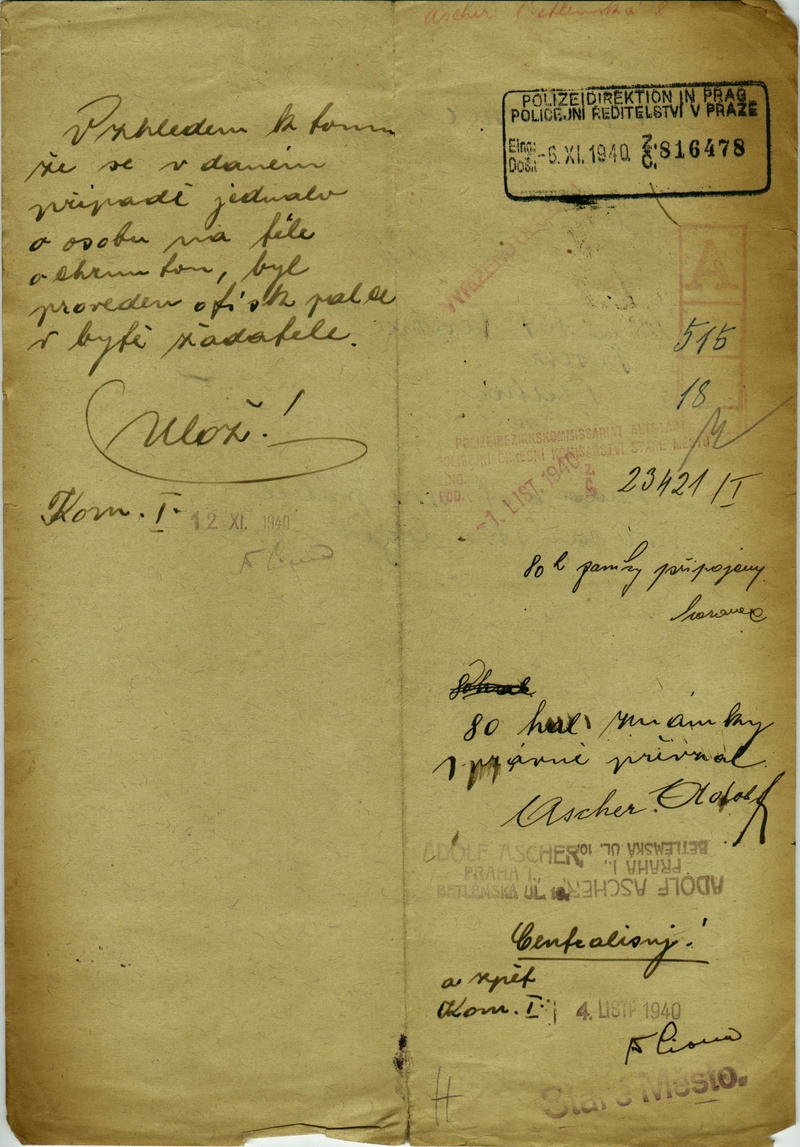 Ascher Betlemská 8
Vzhledem k tomu
že se v daném
případě jednalo
o osobu na těle
ochrnutou, byl
proveden otisk palce
v bytě žadatele.
Ulož!
Kom. I. 12 XI. 1940
POLIZEIDIREKTION IN PRAG
POLICEJNÍ ŘEDITELSTVÍ V PRAZE
Eing:
Došl: -6. XI. 1940 Z. Č. 816478
A
515
18
POLIZEIBEZIRKSKOMMISSARIAT ALTSTADT
POLICEJNÍ OKRESNÍ KOMISAŘSTVÍ STARÉ MĚSTO
-1. LIST. 1940 Z. Č. 23421/I
80 h známky připojeny
80 hal známky
správně přivzal
Ascher Adolf
ADOLF ASCHER
PRAHA I.,
BETLÉMSKÁ UL. 10.
ADOLF ASCHER
PRAHA I.,
BETLÉMSKÁ UL. 10.
Centralisuj!
a zpět
Kom. I. 4. LIST. 1940
H
Staré Město.